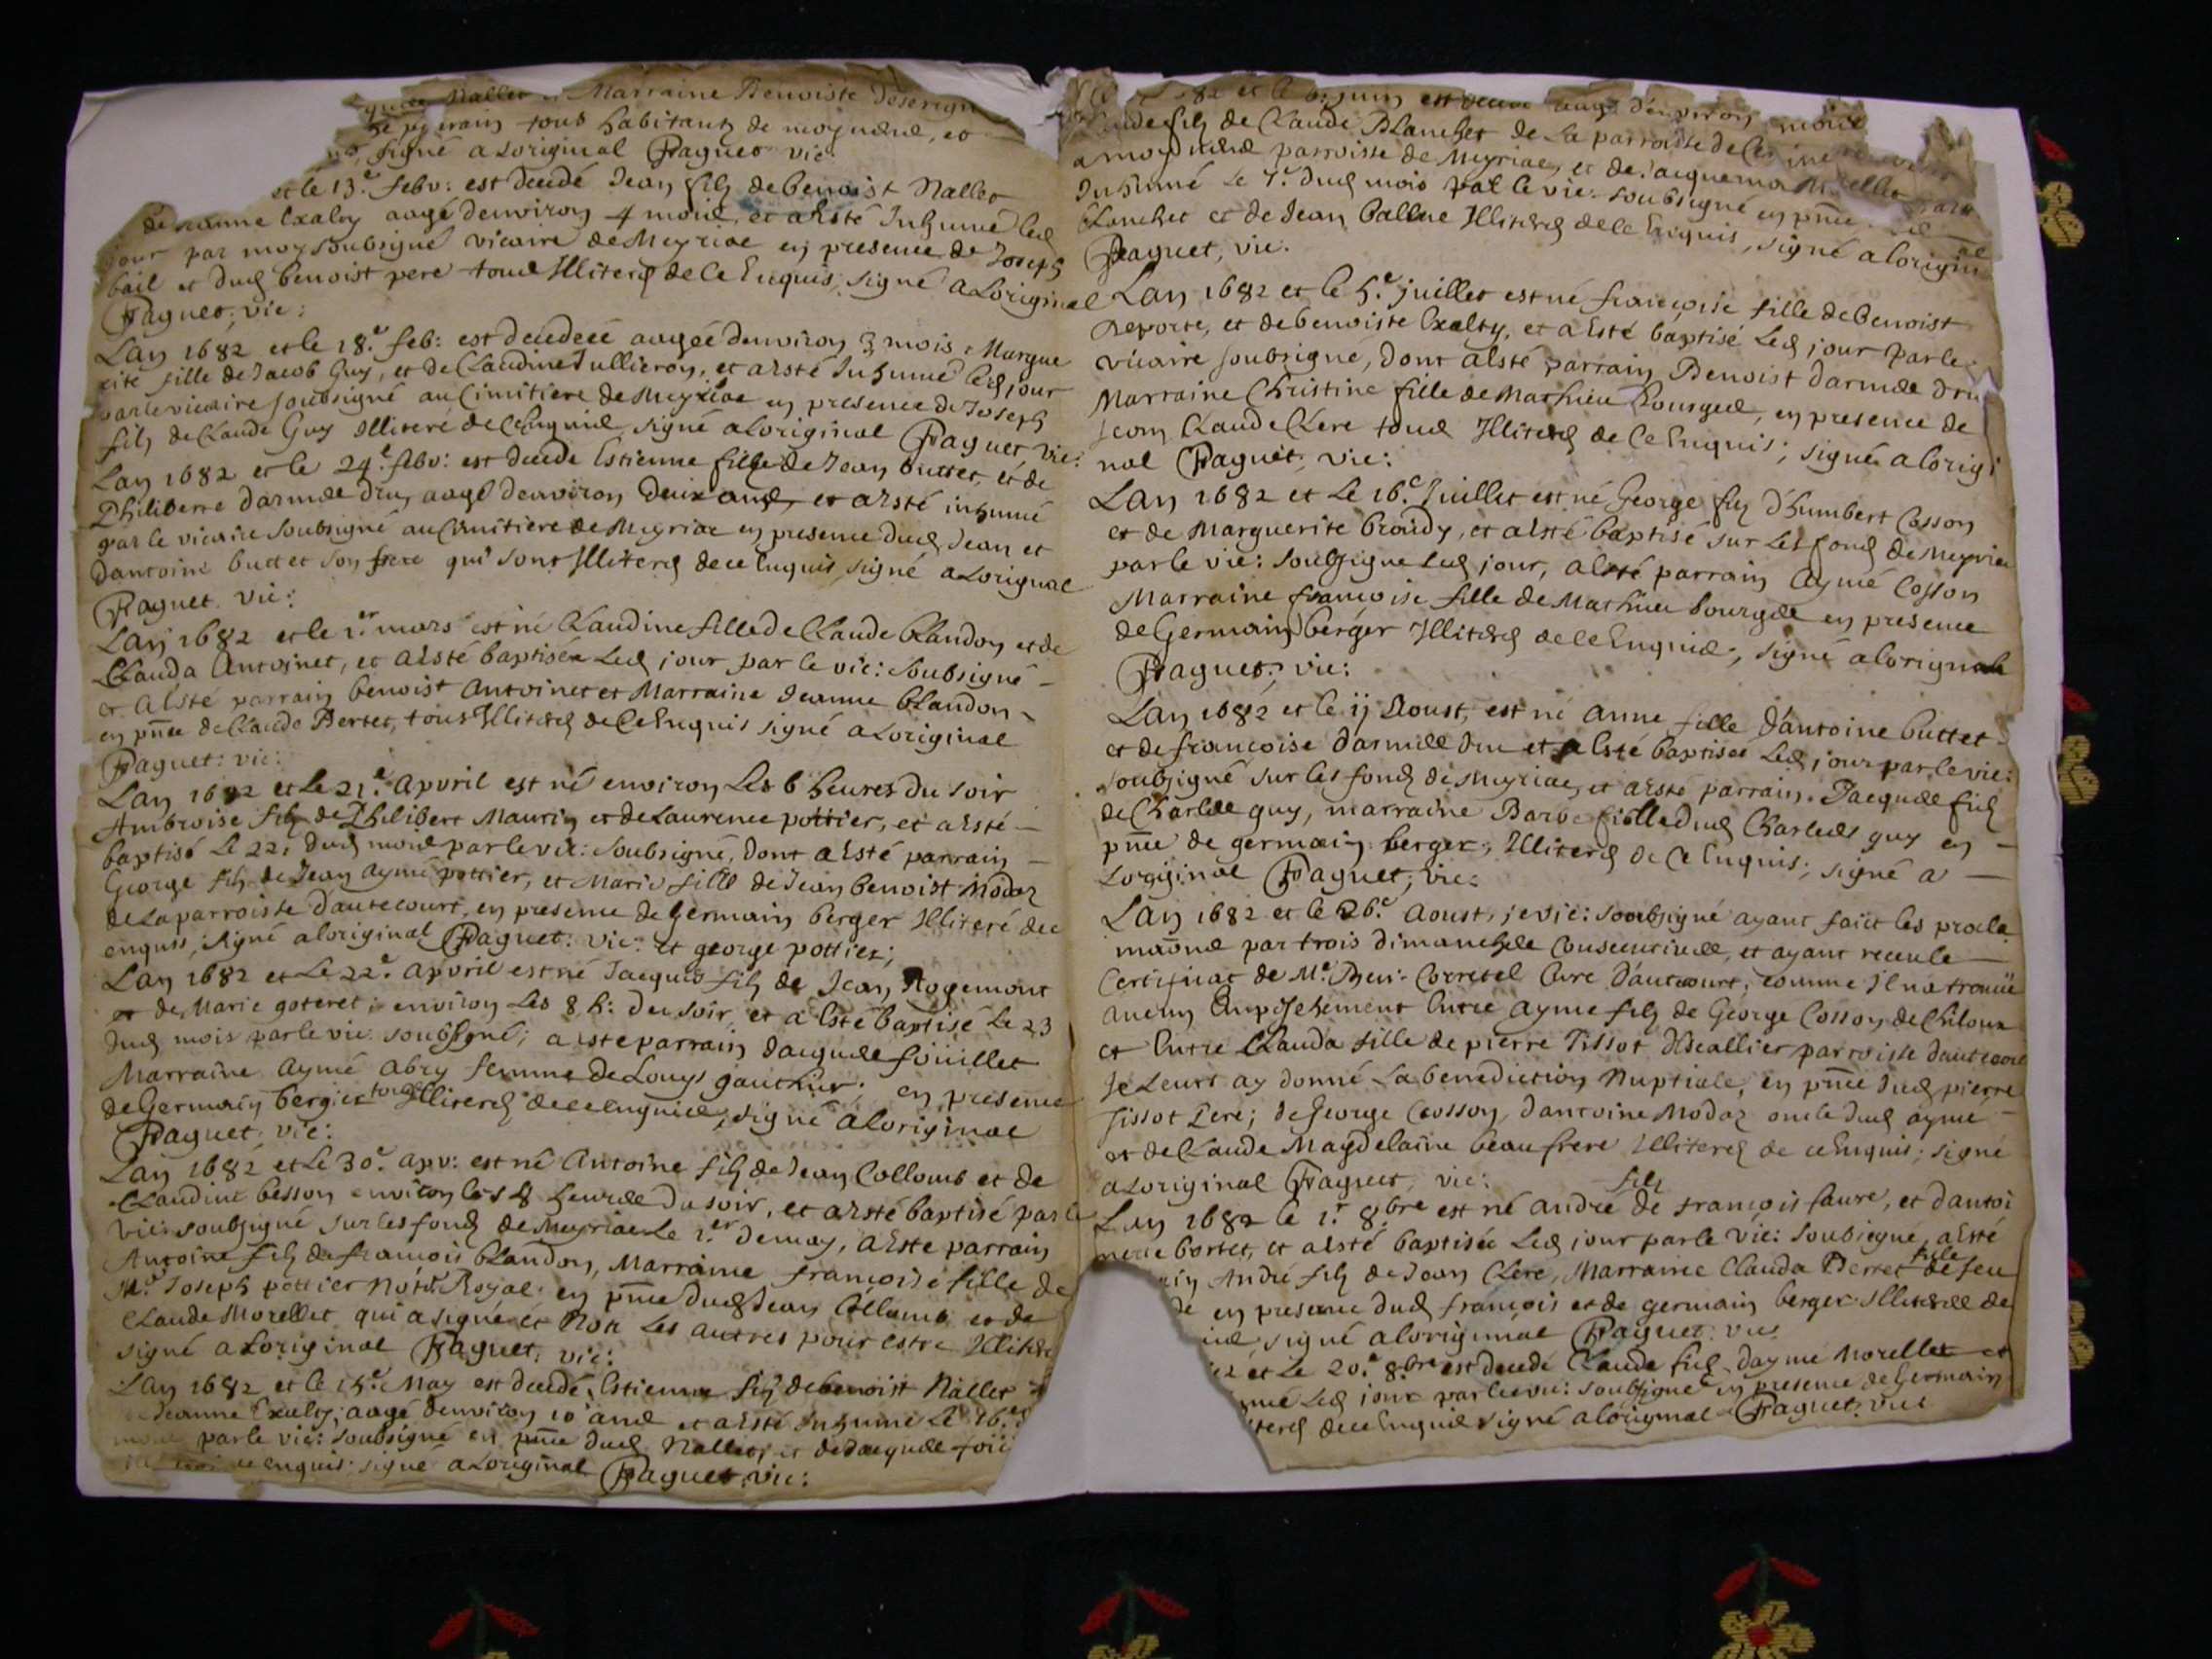 Nallet et Marraine Benoiste
tous habitants de moymême, et
signé a Loriginal Paquet vic:
et le 13.e febv: est decedé Jean filz de benoist Nallet
de Jeanne Exalty aagé denviron 4 mois, et a Esté Inhumé led
jour par moy soubsigné vicaire de Meyriac en presence de Joseph
bail et dud benoist pere tous Illiterés de ce Enquis, signé a Loriginal
Paquet, vic:
Lan 1682 et le 18.e feb: est decedeé aagée denviron 3 mois, Margue
rite fille de Jacob Guy, et de Claudine Jullieron, et a esté Inhumé led jour
par le vicaire soubsigné au Cimitiere de Meyriac en presence de Joseph
filz de Claude Guy Illiteré de ce Enquis, signé a Loriginal Paquet vic:
Lan 1682 et le 24.e febv: est decede Estienne filz de Jean buttet, et de
Philiberte darmde dru, aagé denviron Deux ans, et a Esté inhumé
par le vicaire soubsigné au Cimitiere de Meyriac en presence dud Jean et
dantoine buttet son frere qui sont Illiterés de ce Enquis, signé a Lorignal
Paquet. vic:
Lan 1682 et le 1.er mars est né Claudine fille de Claude Clandon et de
Clauda Antoinet, et a Esté baptisée Led jour par le vic: soubsigné
et a Esté parrain benoist Antoinet et Marraine Jeanne Clandon
en pnce de Claude Bertet, tous Illiterés de Ce Enquis signé a Loriginal
Paquet: vic:
Lan 1682 et Le 21.e apvril est né environ Les 6 heures du soir
Ambroise filz de Philibert Maurin et de Laurence pottier, et a esté
baptisé Le 22, dud mois par le vic: soubsigné, dont a Esté parrain
George filz de Jean Aymé pottier, et Marie fille de Jean benoist Modaz
de La parroisse dautecourt, en presence de Germain berger Illiteré de ce
enquis, signé a loriginal Paquet: vic: et george pottier;
Lan 1682 et Le 22.e apvril est né Jaques filz de Jean Rogemont
et de Marie goteret; environ Les 8 h: du soir, et a Esté baptisé Le 23
dud mois par le vic: soubsigné; a este parrain Jacques foüillet
Marraine Aymé abry femme de Louys gauthier; en presence
de Germain bergier tous Illiterés de ce enquis, signé a loriginal
Paquet; vic:
Lan 1682 et Le 30.e apv: est né Antoine filz de Jean Collomb et de
Claudine besson environ les 8 heures du soir, et a esté baptisé par le
vic: soubsigné sur les fonds de Meyriac Le 1.er de may, a Este parrain
Antoine filz de francois Clandon, Marraine francoise fille de
M.e Joseph pottier Not.e Royal: en pnce dud Jean Collomb et de
Claude Morellet qui a signé et Non Les autres pour estre Illiteré
signé a Loriginal Paquet, vic:
Lan 1682 et le 15.e May est decedé, Estienne filz de benoist Nallet
Jeanne Exalty; aagé denviron 10 ans et a esté Inhumé Le 16.e
mois par le vic: soubsigné en pnce dud Nallet, et de Jacques foüi
enquis; signé a Loriginal Paquet, vic:
82 et le juin est decedé aagé denviron mois
filz de Claude Blanchet de La parroisse de
a moymême parroisse de Meyriac, et de Jacquema Morellet
Inhumé Le 7.e dud mois par le vic: soubsigné en pnce
Blanchet et de Jean Ballue Illiterés de ce Enquis, signé a Lorigin
Paquet, vic:
Lan 1682 et le 5.e juillet est né françoise fille de Benoist
Deporte, et de benoiste Exalty, et a Esté baptisé Led jour par le
vicaire soubsigné, dont a esté parrain Benoist darmde dru
Marraine Christine fille de Mathieu bourgeé, en presence de
Claude Clere tous Illiterés de Ce Enquis; signé a lorigi
nal Paquet; vic:
Lan 1682 et Le 16.e Juillet est né George filz d'humbert Cosson
et de Marguerite broudy, et a Esté baptisé sur Les fonds de Meyriac
par le vic: soubsigne Led jour, a Esté parrain Aymé Cosson
Marraine francoise fille de Mathieu bourgde en presence
de Germain berger Illiterés de ce Enquis; signé a lorignal
Paquet; vic:
Lan 1682 et le ij Aoust, est né anne fille d'antoine buttet
et de francoise darmde dru et a Esté baptisee Led jour par le vic:
soubsigné sur les fonds de Meyriac, et a esté parrain. Jacques filz
de Charles guy, marraine Barbe fille dud Charles guy en
pnce de germain berger; Illiterés de Ce Enquis; signé a
Loriginal Paquet; vic:
Lan 1682 et le 26.e aoust, je vic: soubsigné ayant faict les procla
maons par trois dimanches Consecutives, et ayant receu le
Certificat de M.e Corretel Cure dautecourt, comme Il na trouué
aucun Empeschement Entre ayme filz de George Cosson de Chiloux
et Entre Clauda fille de pierre Tissot parroisse dautecourt
Je Leurs ay donné La benediction Nuptiale, en pnce dud pierre
Tissot pere; de George Cosson, dantoine Modaz oncle dud ayme
et de Claude Magdelaine beau frere Illiterés de ce Enquis; signé
a Loriginal Paquet; vic:
Lan 1682 le 1.r 8bre est né andré filz de françois faure, et dantoi
nette bertet, et a Esté baptisée Led jour par le vic: soubsigné, a Esté
André filz de Jean Clere, Marraine Clauda Bertet fille de feu
de en presence dud françois et de germain berger Illiterés de
signé a loriginal Paquet: vic:
et Le 20.e 8bre est decedé Claude filz dayme Morellet et
Led jour par le vic: soubsigné en presence de Germain
de ce Enquis signé a loriginal Paquet: vic